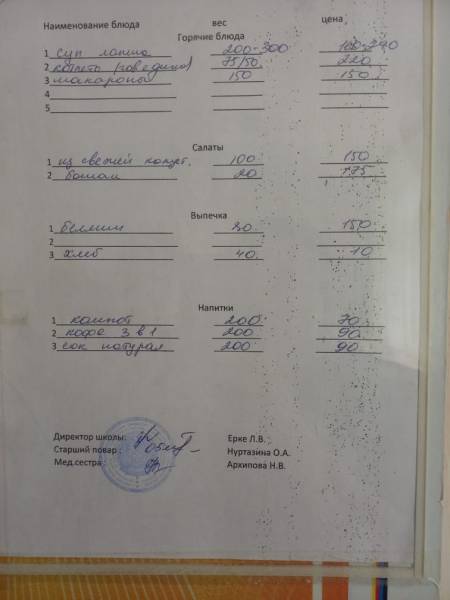 Наименование блюда вес цена
Горячие блюда
1 суп лапша 200-300
2 котлеты (говядина) 75/50 220
3 макароны 150 150
4
5
Салаты
1 из свежей капуст. 100 150
2 20 175
Выпечка
1 150
2
3 хлеб 40 10
Напитки
1 компот 200 70
2 кофе 3 в 1 200 90
3 сок натурал 200 90
Директор школы: Ерке Л.В.
Старший повар : Нуртазина О.А.
Мед.сестра : Архипова Н.В.